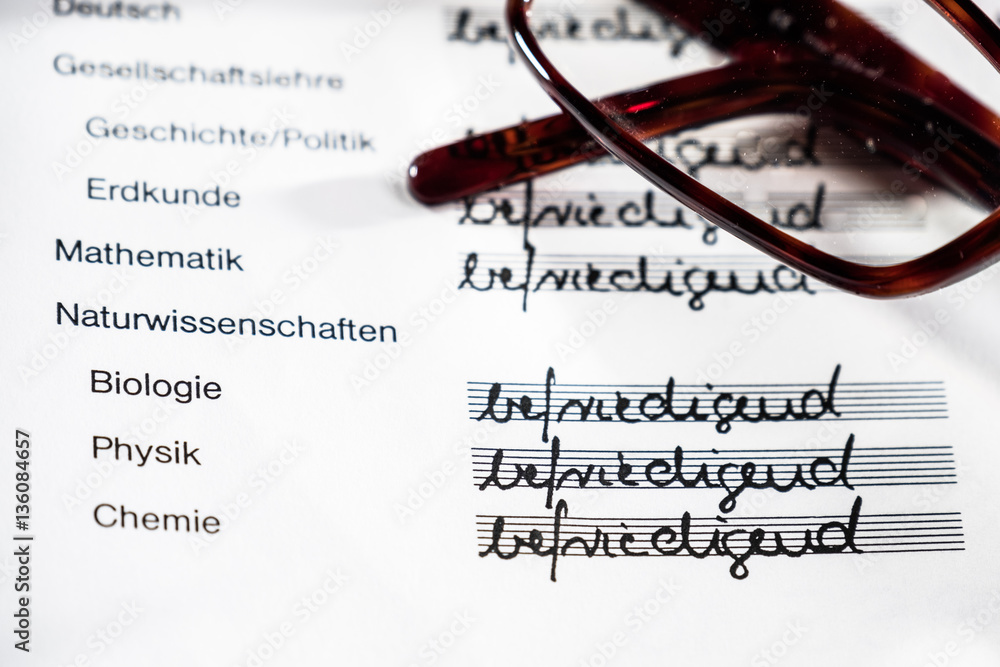 Deutsch befriedigend
Gesellschaftslehre
Geschichte/Politik befriedigend
Erdkunde befriedigend
Mathematik befriedigend
Naturwissenschaften
Biologie befriedigend
Physik befriedigend
Chemie befriedigend
Adobe Stock | #136084657